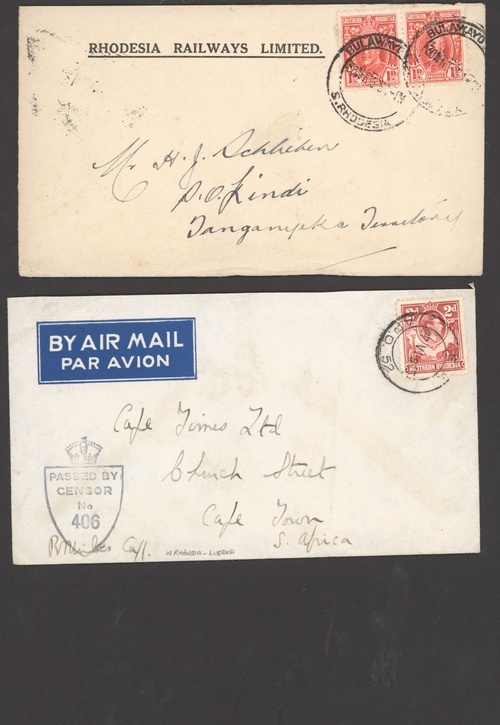 RHODESIA RAILWAYS LIMITED.
SOUTHERN RHODESIA
1D 1D
BULAWAYO
S. RHODESIA
BULAWAYO
Mr H. J. Schlieben
P.O. Lindi
Tanganyika Territory
BY AIR MAIL
PAR AVION
2d 2d
NORTHERN RHODESIA
52
Cape Times Ltd
Church Street
Cape Town
S. Africa
PASSED BY
CENSOR
No
406
N RHODESIA - LUSAKA